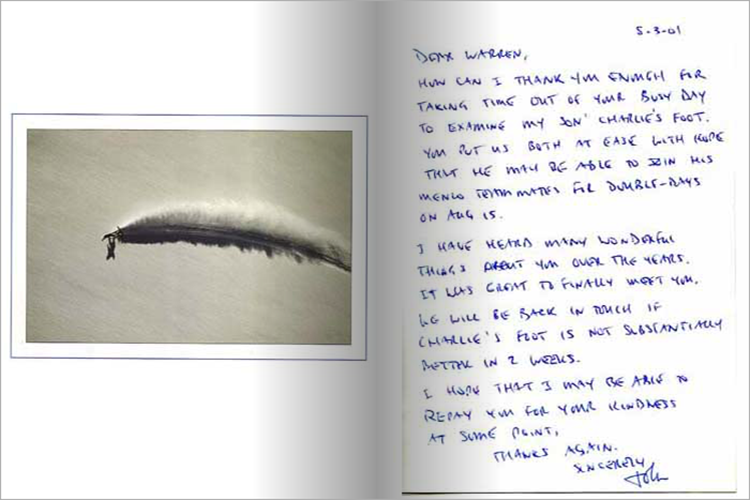 5-3-01
DEAR WARREN,
HOW CAN I THANK YOU ENOUGH FOR
TAKING TIME OUT OF YOUR BUSY DAY
TO EXAMINE MY SON' CHARLIE'S FOOT.
YOU PUT US BOTH AT EASE WITH HOPE
THAT HE MAY BE ABLE TO JOIN HIS
MENLO TEAMMATES FOR DOUBLE-DAYS
ON AUG 15.
I HAVE HEARD MANY WONDERFUL
THINGS ABOUT YOU OVER THE YEARS.
IT WAS GREAT TO FINALLY MEET YOU.
WE WILL BE BACK IN TOUCH IF
CHARLIE'S FOOT IS NOT SUBSTANTIALLY
BETTER IN 2 WEEKS.
I HOPE THAT I MAY BE ABLE TO
REPAY YOU FOR YOUR KINDNESS
AT SOME POINT,
THANKS AGAIN.
SINCERELY
John